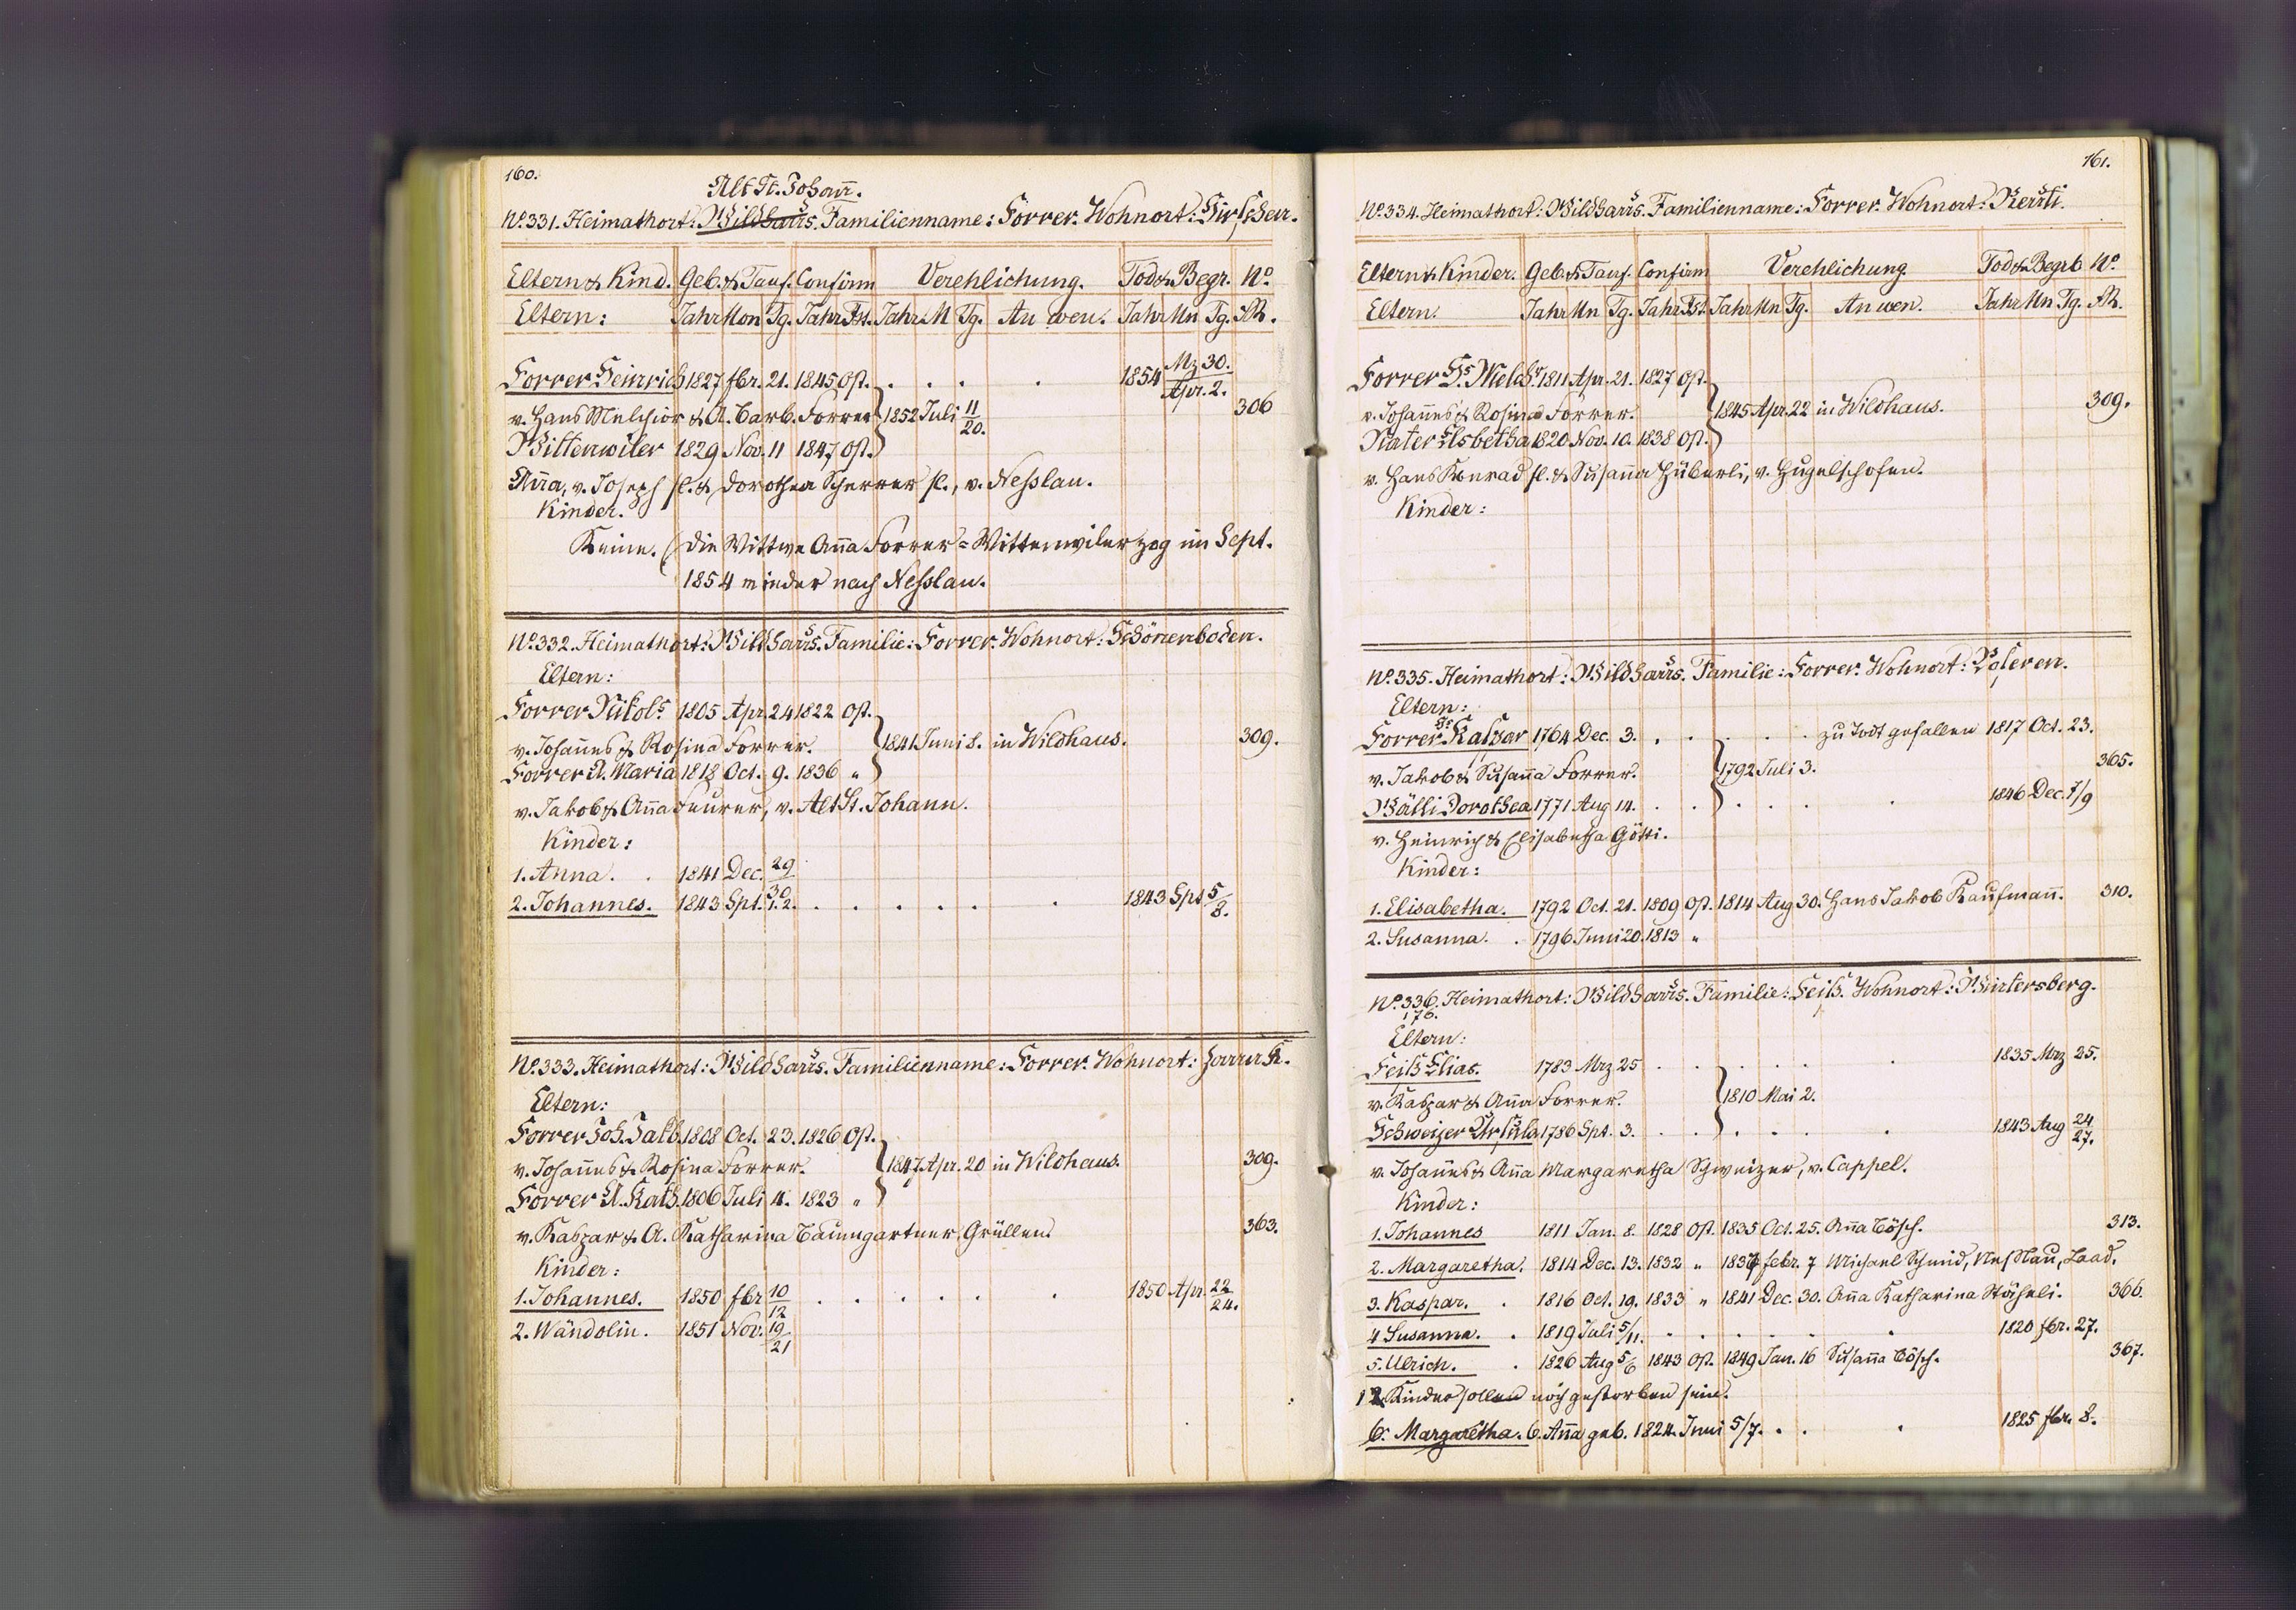 160.
Alt St. Johañ.
No. 331. Heimathort: Wildhaus. Familienname: Forrer. Wohnort:
Eltern & Kind. Geb. & Tauf. Confirm Verehlichung. Tod & Begr. No.
Eltern: Jahr Mon Tg. Jahr Fst. Jahr M Tg. An wen. Jahr Mn Tg. R.
Forrer Heinrich 1827 fbr. 21. 1845 Ost. . . . . 1854 Mz 30. / Apr. 2.
v. Hans Melchior & A. Barb. Forrer 1852 Juli 11/20. 306
Wittenwiler 1829 Nov. 11 1847 Ost.
Aña, v. Joseph sl. & Dorothea Scherrer sl., v. Nesslau.
Kinder.
Keine. (Die Wittwe Aña Forrer = Wittenwiler zog im Sept.
1854 wieder nach Nesslau.
No. 332. Heimathort: Wildhaus. Familie: Forrer. Wohnort: Schönenboden.
Eltern:
Forrer Nikols 1805 Apr. 24 1822 Ost.
v. Johañes & Rosina Forrer. 1841 Juni 8. in Wildhaus. 309.
Forrer A. Maria 1818 Oct. 9. 1836 "
v. Jakob & Aña Feurer, v. Alt St. Johann.
Kinder:
1. Anna. . 1841 Dec. 29/30
2. Johannes. 1843 Spt. 1.2. . . . . . . 1843 Spt 5/8.
No. 333. Heimathort: Wildhaus. Familienname: Forrer. Wohnort:
Eltern:
Forrer Joh. Jakb. 1808 Oct. 23. 1826 Ost.
v. Johañes & Rosina Forrer. 1847 Apr. 20 in Wildhaus. 309.
Forrer A. Kath. 1806 Juli 4. 1823 "
v. Kaspar & A. Katharina Baumgartner, Grüllen. 363.
Kinder:
1. Johannes. 1850 fbr 10/12 . . . . . . 1850 Apr. 22/24.
2. Wändolin. 1851 Nov. 19/21
161.
No. 334. Heimathort: Wildhaus. Familienname: Forrer. Wohnort:
Eltern & Kinder. Geb. & Tauf. Confirm Verehlichung. Tod & Begrb No.
Eltern. Jahr Mn Tg. Jahr Fst. Jahr Mn Tg. An wen. Jahr Mn Tg. R.
Forrer Hs. Melchr 1811 Apr. 21. 1827 Ost.
v. Johañes & Rosina Forrer. 1845 Apr. 22 in Wildhaus. 309.
Nater Elsbetha 1820 Nov. 10. 1838 Ost.
v. Hans Konrad sl. & Susaña Hüberli, v. Hugelschofen.
Kinder:
No. 335. Heimathort: Wildhaus. Familie: Forrer. Wohnort:
Eltern:
Forrer Kaspar 1764 Dec. 3. . . . . . zu Todt gefallen 1817 Oct. 23.
v. Jakob & Susaña Forrer. 1792 Juli 3. 365.
Wälli Dorothea 1771 Aug 14. . . . . . . 1846 Dec. 7/9
v. Heinrich & Elisabetha Götti.
Kinder:
1. Elisabetha. 1792 Oct. 21. 1809 Ost. 1814 Aug 30. Hans Jakob Kaufmañ. 310.
2. Susanna. . 1796 Juni 20. 1813 "
No. 336. Heimathort: Wildhaus. Familie: Feiß. Wohnort: Wintersberg.
176.
Eltern:
Feiß Elias. 1783 Mrz 25 . . . . . . 1835 Mrz 25.
v. Kaspar & Aña Forrer. 1810 Mai 2.
Schweizer Ursula 1786 Spt. 3. . . . . . . 1843 Aug 24/27.
v. Johañes & Aña Margaretha Schweizer, v. Cappel.
Kinder:
1. Johannes 1811 Jan. 8. 1828 Ost. 1835 Oct. 25. Aña Bösch. 313.
2. Margaretha. 1814 Dec. 13. 1832 " febr. 7 Michael Schmid, Nesslau, Laad.
3. Kaspar. . 1816 Oct. 19. 1833 " 1841 Dec. 30. Aña Katharina Stäheli. 366.
4 Susanna. . 1819 Juli 5/11. . . . . . . 1820 fbr. 27.
5. Ulrich. . 1826 Aug 5/6 1843 Ost. 1849 Jan. 16 Susaña Bösch. 367.
1 Kinder sollen noch gestorben sein.
6. Margaretha. 6. Aña geb. 1824. Juni 5/7. . . . 1825 fbr. 8.